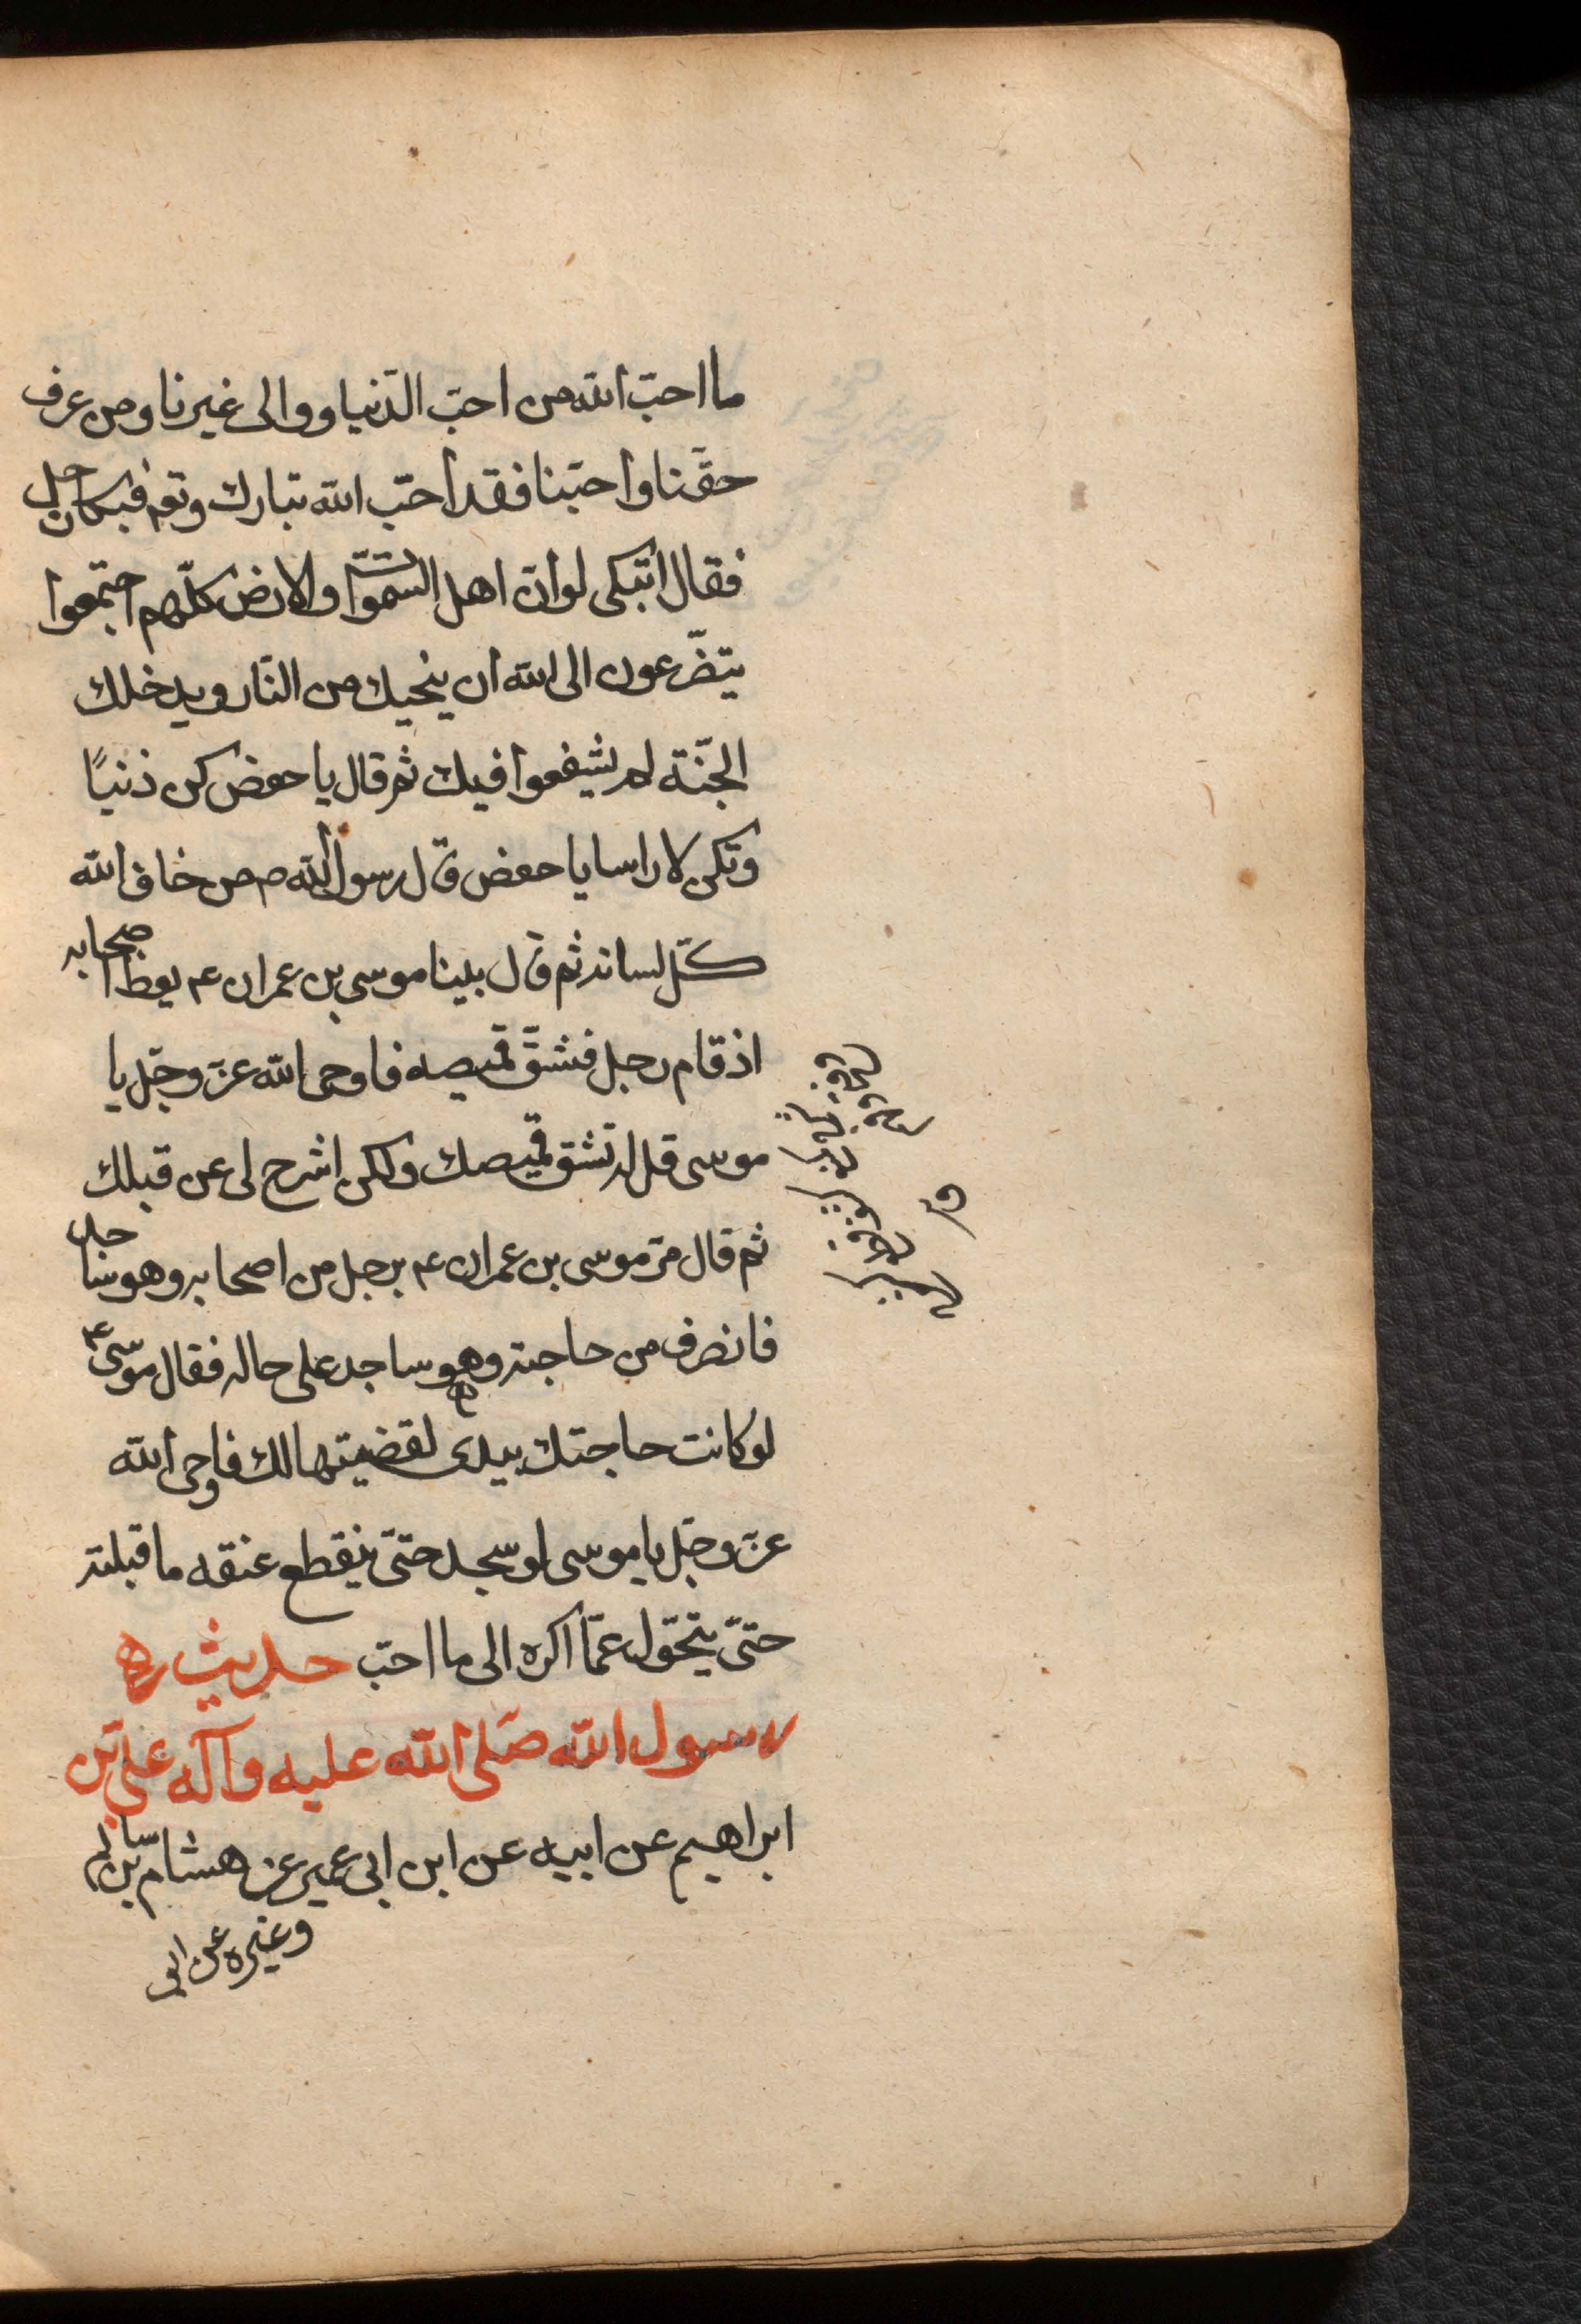 ما احبّ الله من احبّ الدّنيا ووالى غيرنا ومن عرف
حقّنا واحبّنا فقد احبّ الله تبارك وتعم فبكا رجل
فقال اتبكى لو ان اهل السّموات والارض كلّهم اجتمعوا
يتضّرعون الى الله ان ينجيك من النّار ويدخلك
الجنّة لم يشفعوا فيك ثم قال يا حفص كن ذنبًا
وتكن لا راسا يا حفص قال رسول الله ص من خاف الله
كلّ لسانه ثم قال بينا موسى بن عمران ع يعظ اصحابه
اذ قام رجل فشقّ قميصه فاوحى الله عزّ وجلّ يا
موسى قل له تشق قميصك ولكن اشرح لى عن قبلك
ثم قال مرّ موسى بن عمران ع برجل من اصحابه وهو ساجد
فانصرف من حاجته وهو ساجد على حاله فقال موسى ع
لو كانت حاجتك بيدى لقضيتها لك فاوحى الله
عزّ وجلّ يا موسى لو سجد حتىّ ينقطع عنقه ما قبلته
حتىّ يتحوّل عمّا اكره الى ما احبّ حديث ره
رسول الله صّلى الله عليه وآله علىّ بن
ابراهيم عن ابيه عن ابن ابى عمير عن هشام بن سالم
وغيره عن ابى